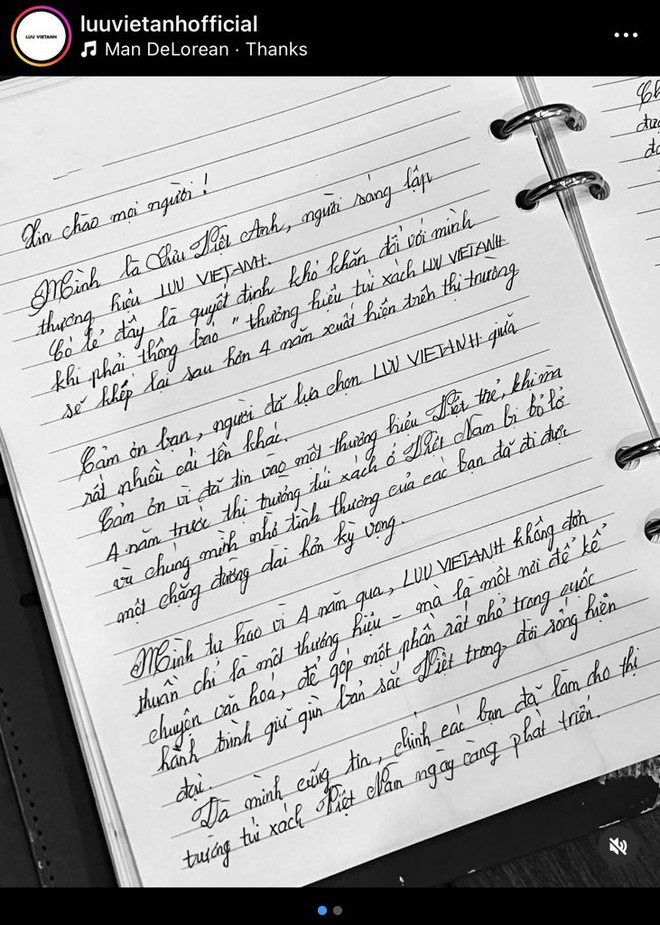 luuvietanhofficial
Man DeLorean · Thanks
LUU VIETANH
Xin chào mọi người!
Mình là Lưu Việt Anh, người sáng lập
thương hiệu LUU VIETANH.
Có lẽ đây là quyết định khó khăn đối với mình
khi phải thông báo " thương hiệu túi xách LUU VIETANH
sẽ khép lại sau hơn 4 năm xuất hiện trên thị trường
Cảm ơn bạn, người đã lựa chọn LUU VIETANH giữa
rất nhiều cái tên khác.
Cảm ơn vì đã tin vào một thương hiệu Việt trẻ, khi mà
4 năm trước thị trường túi xách ở Việt Nam bị bỏ lỡ
và chúng mình nhờ tình thương của các bạn đã đi được
một chặng đường dài hơn kỳ vọng.
Mình tự hào vì 4 năm qua, LUU VIETANH không đơn
thuần chỉ là một thương hiệu - mà là một nơi để kể
chuyện văn hoá, để góp một phần rất nhỏ trong cuộc
hành trình giữ gìn bản sắc Việt trong đời sống hiện
đại.
Và mình cũng tin, chính các bạn đã làm cho thị
trường túi xách Việt Nam ngày càng phát triển.